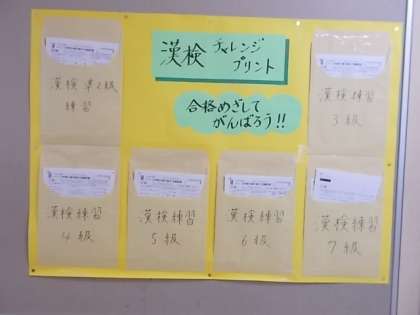 漢検 チャレンジ
プリント
合格めざして
がんばろう!!
漢検 準2級
練習
漢検練習
3級
漢検練習
4級
漢検練習
5級
漢検練習
6級
漢検練習
7級